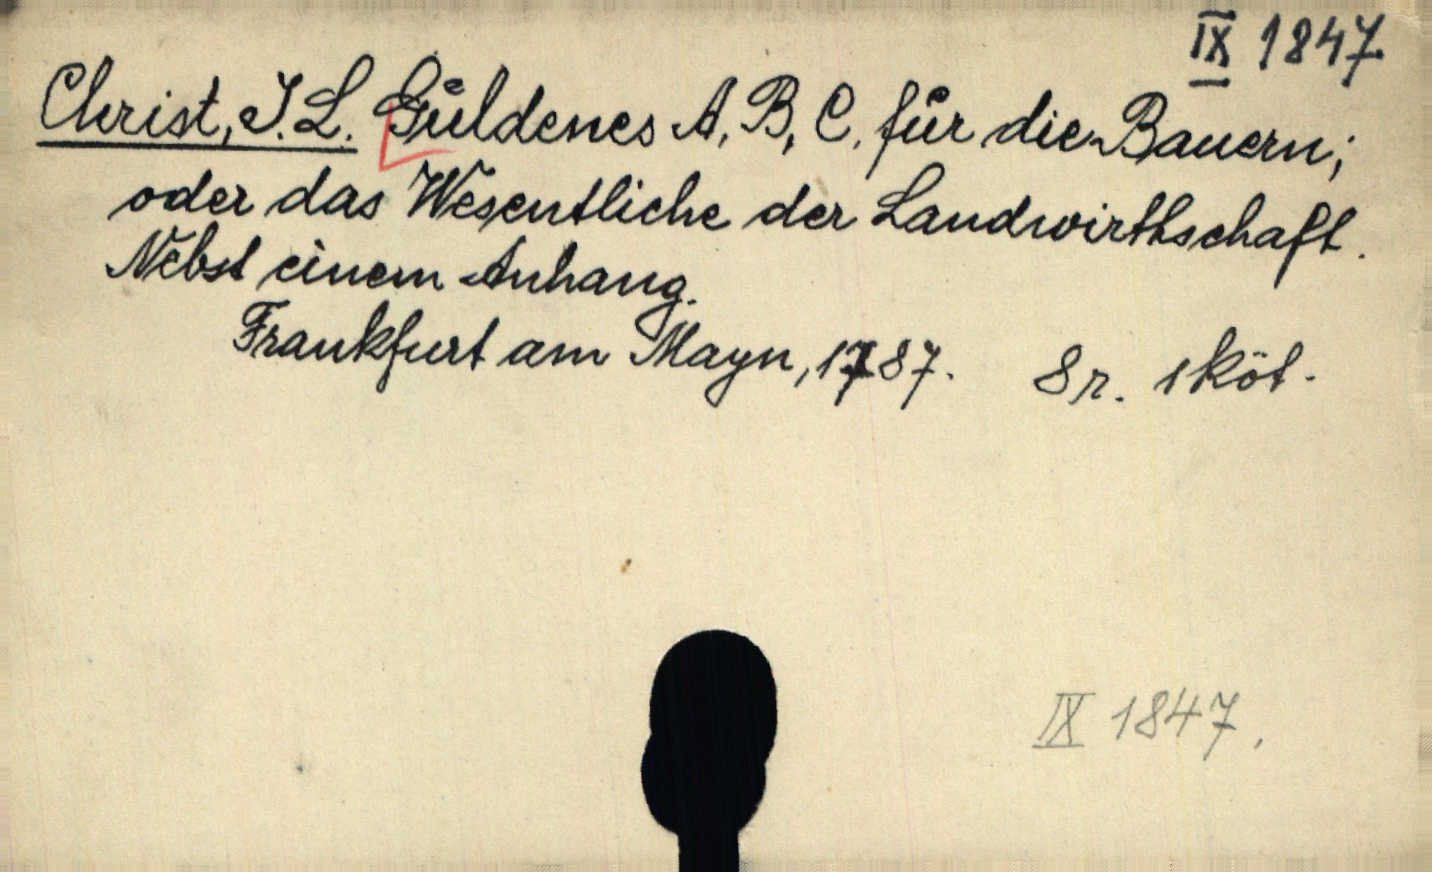 IX 1847
Christ, J. L. Güldenes A, B, C, für die Bauern;
oder das Wesentliche der Landwirthschaft.
Nebst einem Anhang.
Frankfurt am Mayn, 1787. 8r. 1 köt.
IX 1847.